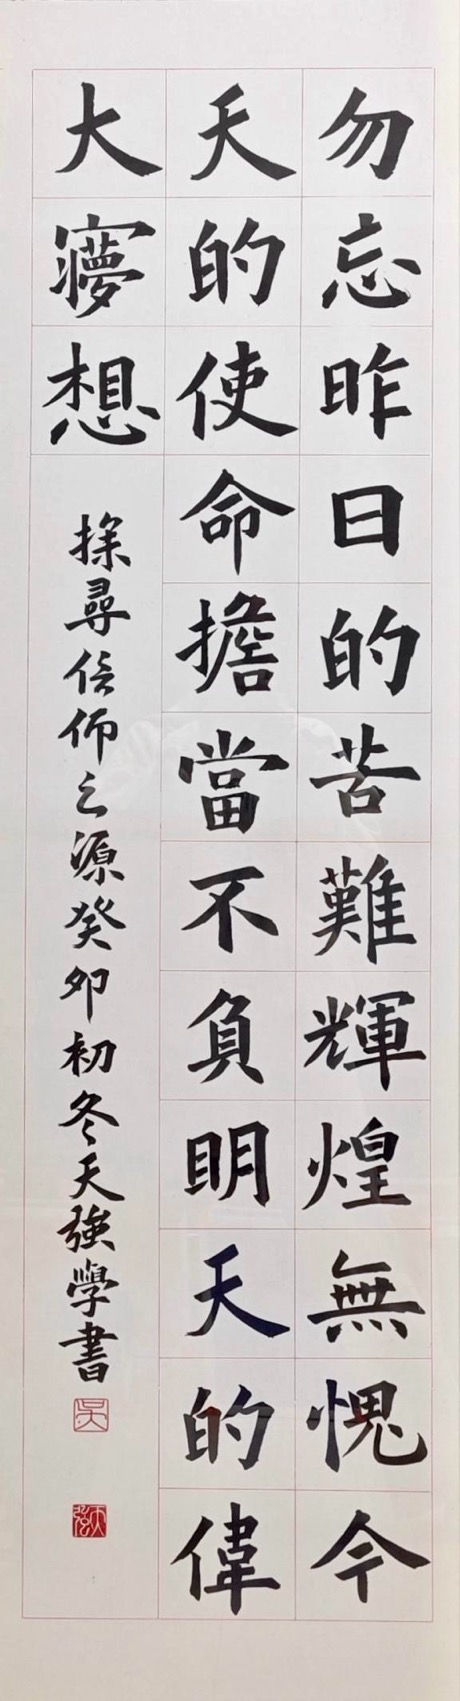 勿忘昨日的苦難輝煌無愧今
天的使命擔當不負明天的偉
大寢想
探尋信仰之源癸卯初冬天強學書
吳
天強